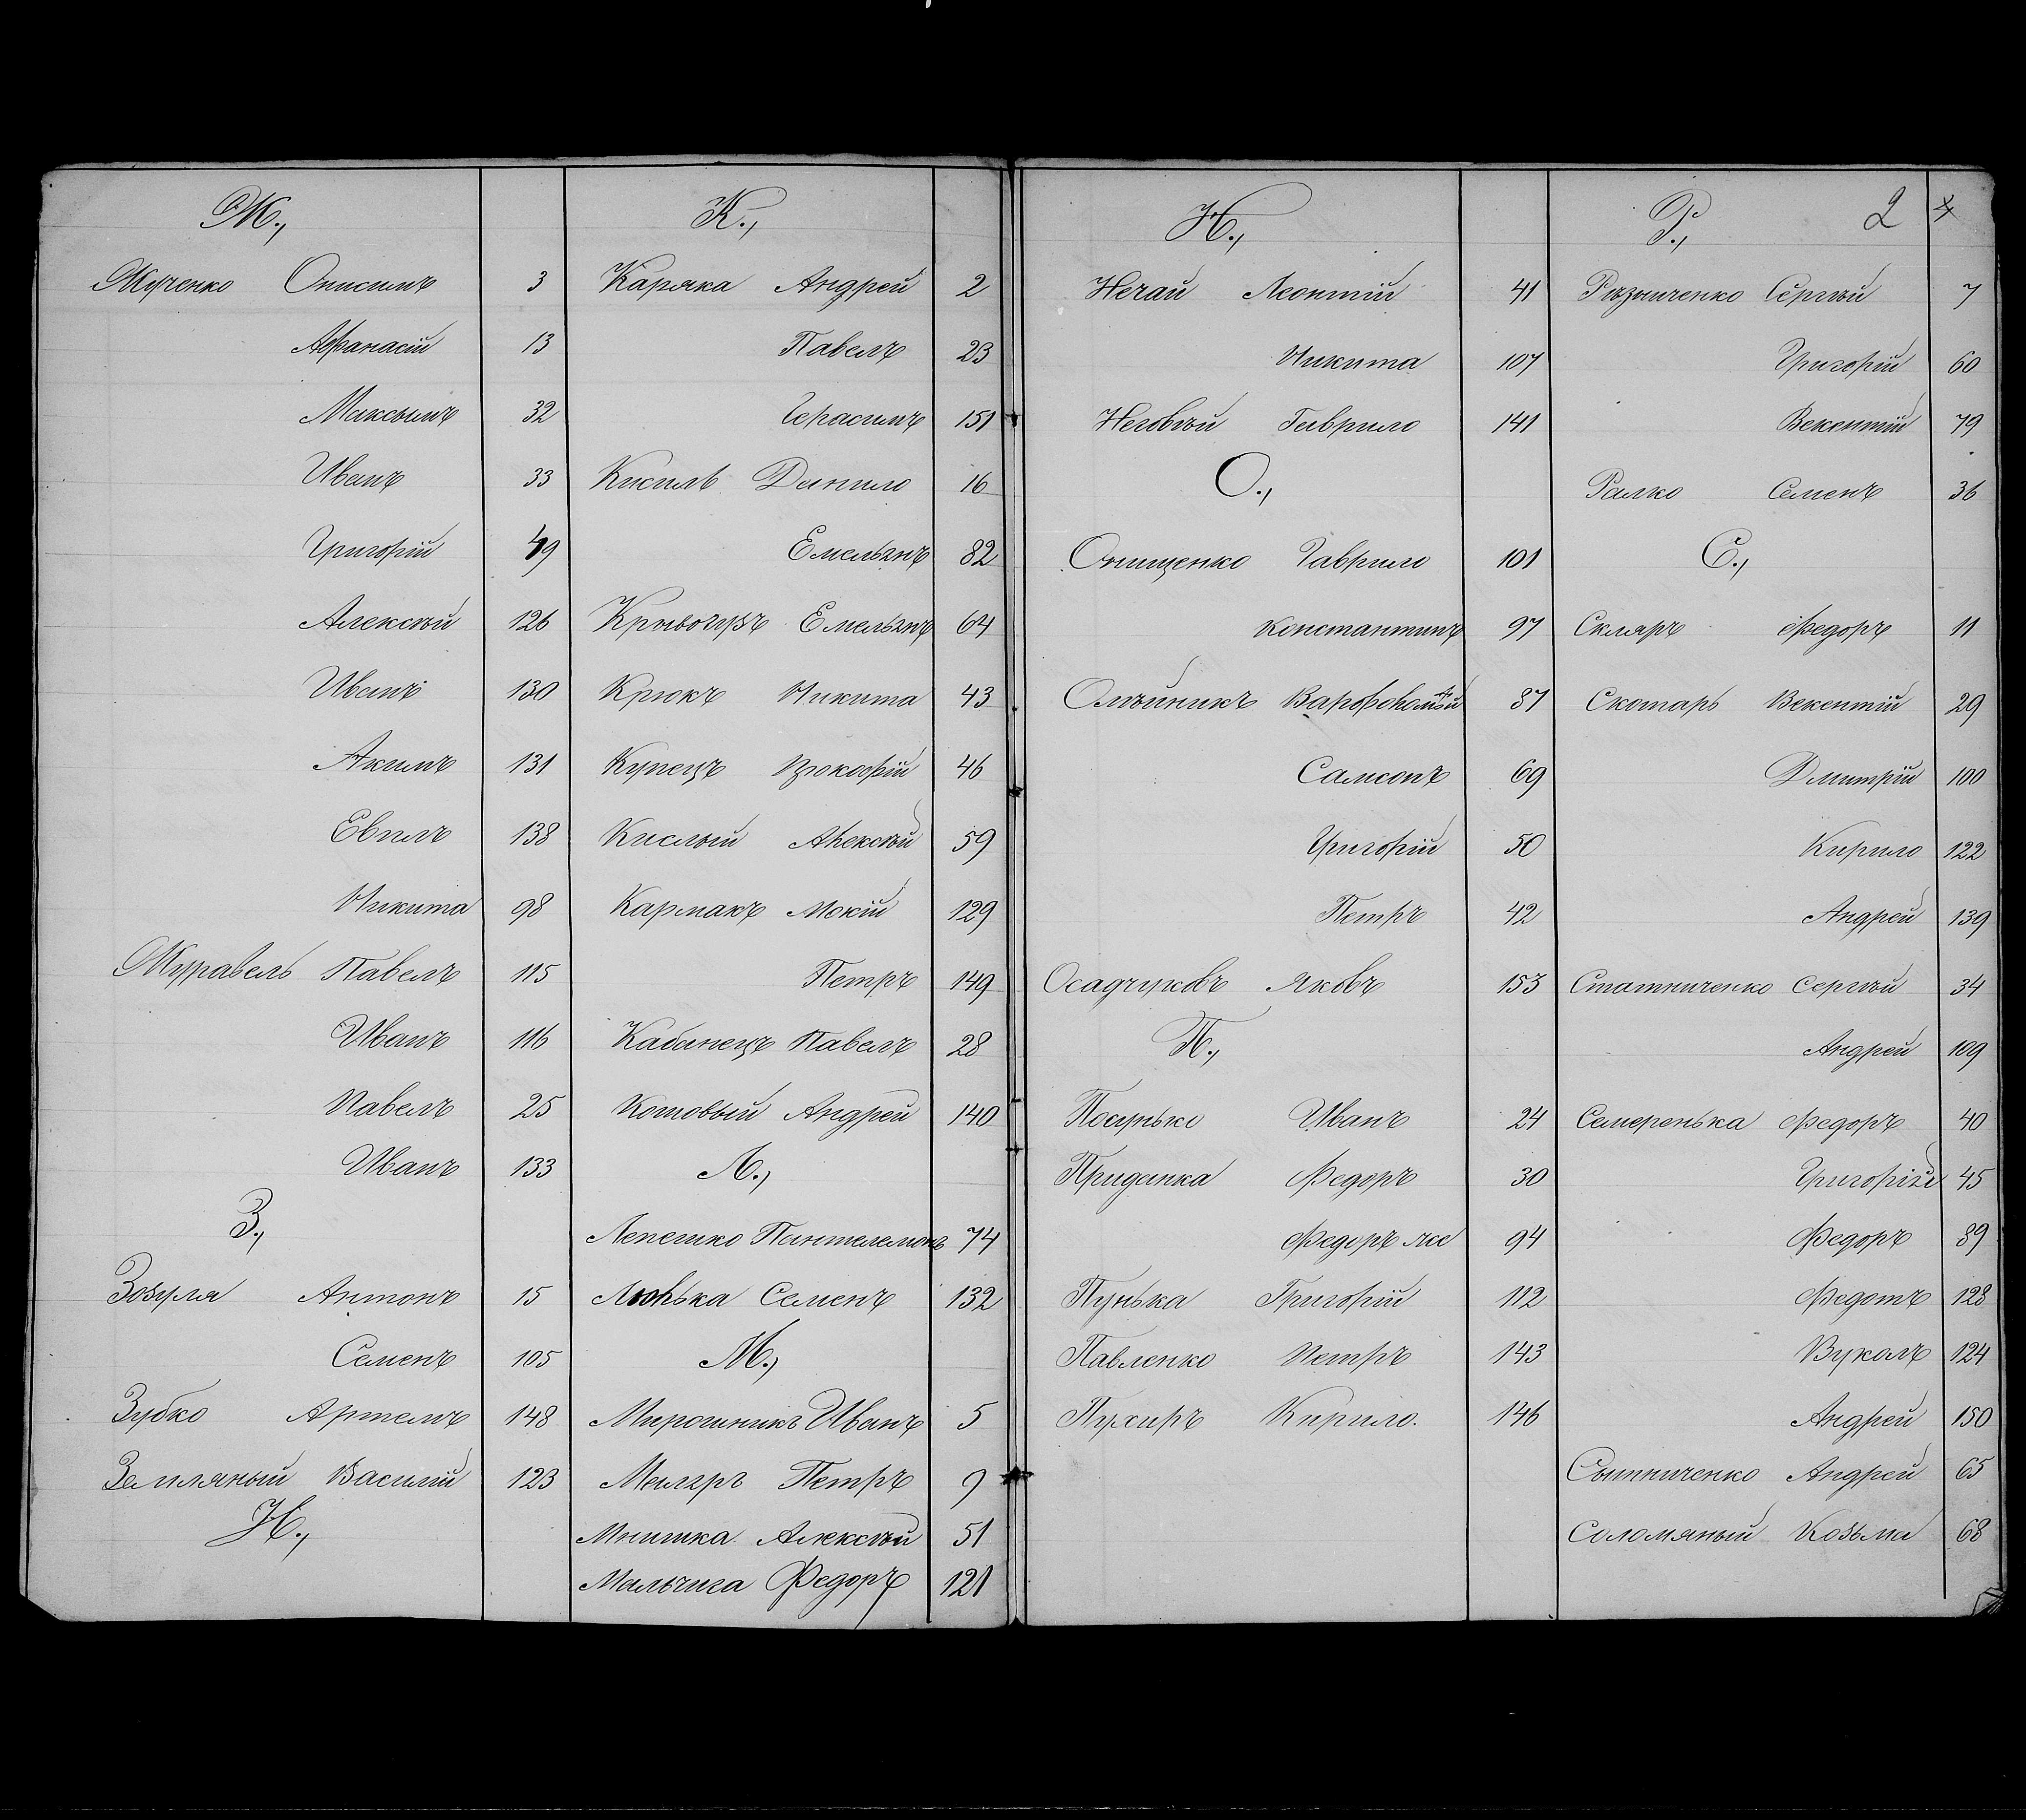 Ж.,
Жученко Онисимъ 3
Афанасій 13
Максымъ 32
Иванъ 33
Григорій 49
Алексѣй 126
Иванъ 130
Акимъ 131
Евпль 138
Никита 98
Журавель Павелъ 115
Иванъ 116
Павелъ 25
Иванъ 133
З.,
Зозуля Антонъ 15
Семенъ 105
Зубко Артемъ 148
Земляный Василій 123
И.,
К.,
Каряка Андрей 2
Павелъ 23
Герасимъ 151
Кисиль Данило 16
Емельянъ 82
Емельянъ 64
Крюкъ Никита 43
Купецъ Прокофій 46
Кислый Алексѣй 59
Кармакъ Мокій 129
Петръ 149
Кабанецъ Павелъ 28
Котовый Андрей 140
Л.,
Лепешко Пантелемонъ 74
Люлька Семенъ 132
М.,
Мирошникъ Иванъ 5
Петръ 9
Мнишка Алексѣй 51
Мальчига Федоръ 121
Н.,
Нечай Леонтій 41
Никита 107
Гаврило 141
О.,
Онищенко Гаврило 101
Константинъ 97
Олѣйникъ Варфоломѣй 87
Самсонъ 69
Григорій 50
Петръ 42
Осадчуковъ Яковъ 153
П.,
Посунько Иванъ 24
Приданка Федоръ 30
Федоръ же 94
Пунька Григорій 112
Павленко Петръ 143
Пухиръ Кирило. 146
Р., 2 4
Рѣзниченко Сергѣй 7
Григорій 60
Векентій 79
Ралко Семенъ 36
С.,
Скляръ Федоръ 11
Скотарь Векентій 29
Дмитрій 100
Кирило 122
Андрей 139
Статниченко Сергѣй 34
Андрей 109
Семеренька Федоръ 40
Григорій 45
Федоръ 89
Федотъ 128
Вуколъ 124
Андрей 150
Сытниченко Андрей 65
Соломяный Козьма 68